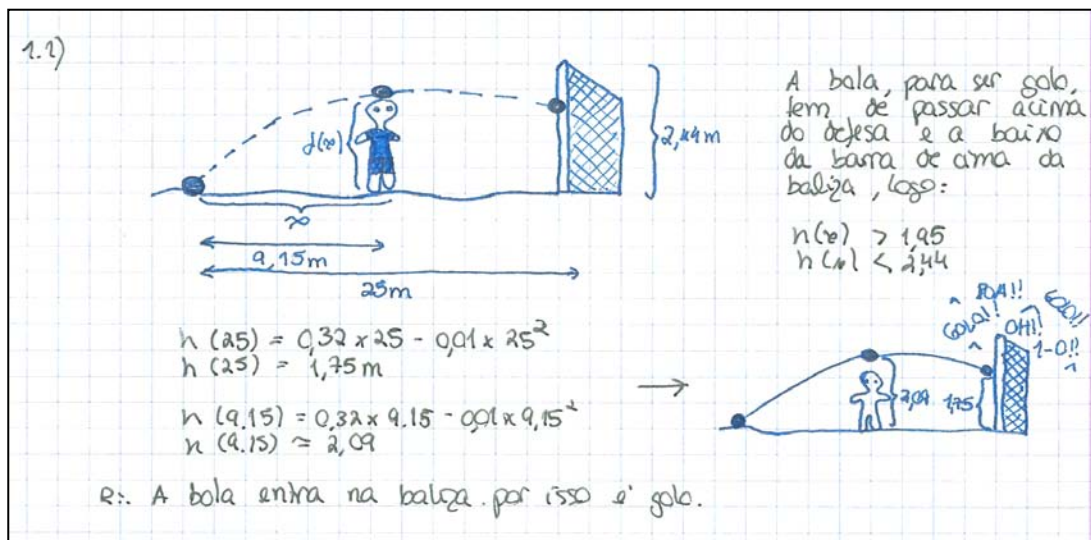 1.1)
f(x)
x
9,15m
25m
2,44m
A bola, para ser golo,
tem de passar acima
do defesa e a baixo
da barra de cima da
baliza, logo:
h(x) > 1,95
h(x) < 2,44
h (25) = 0,32 x 25 - 0,01 x 25²
h (25) = 1,75 m
h (9.15) = 0,32 x 9.15 - 0,01 x 9,15²
h (9.15) ≈ 2,09
→
BOA!!
GOLO!!
OH!!
GOLO!!
1-0!!
2,09
1,75
R:. A bola entra na baliza. por isso é golo.